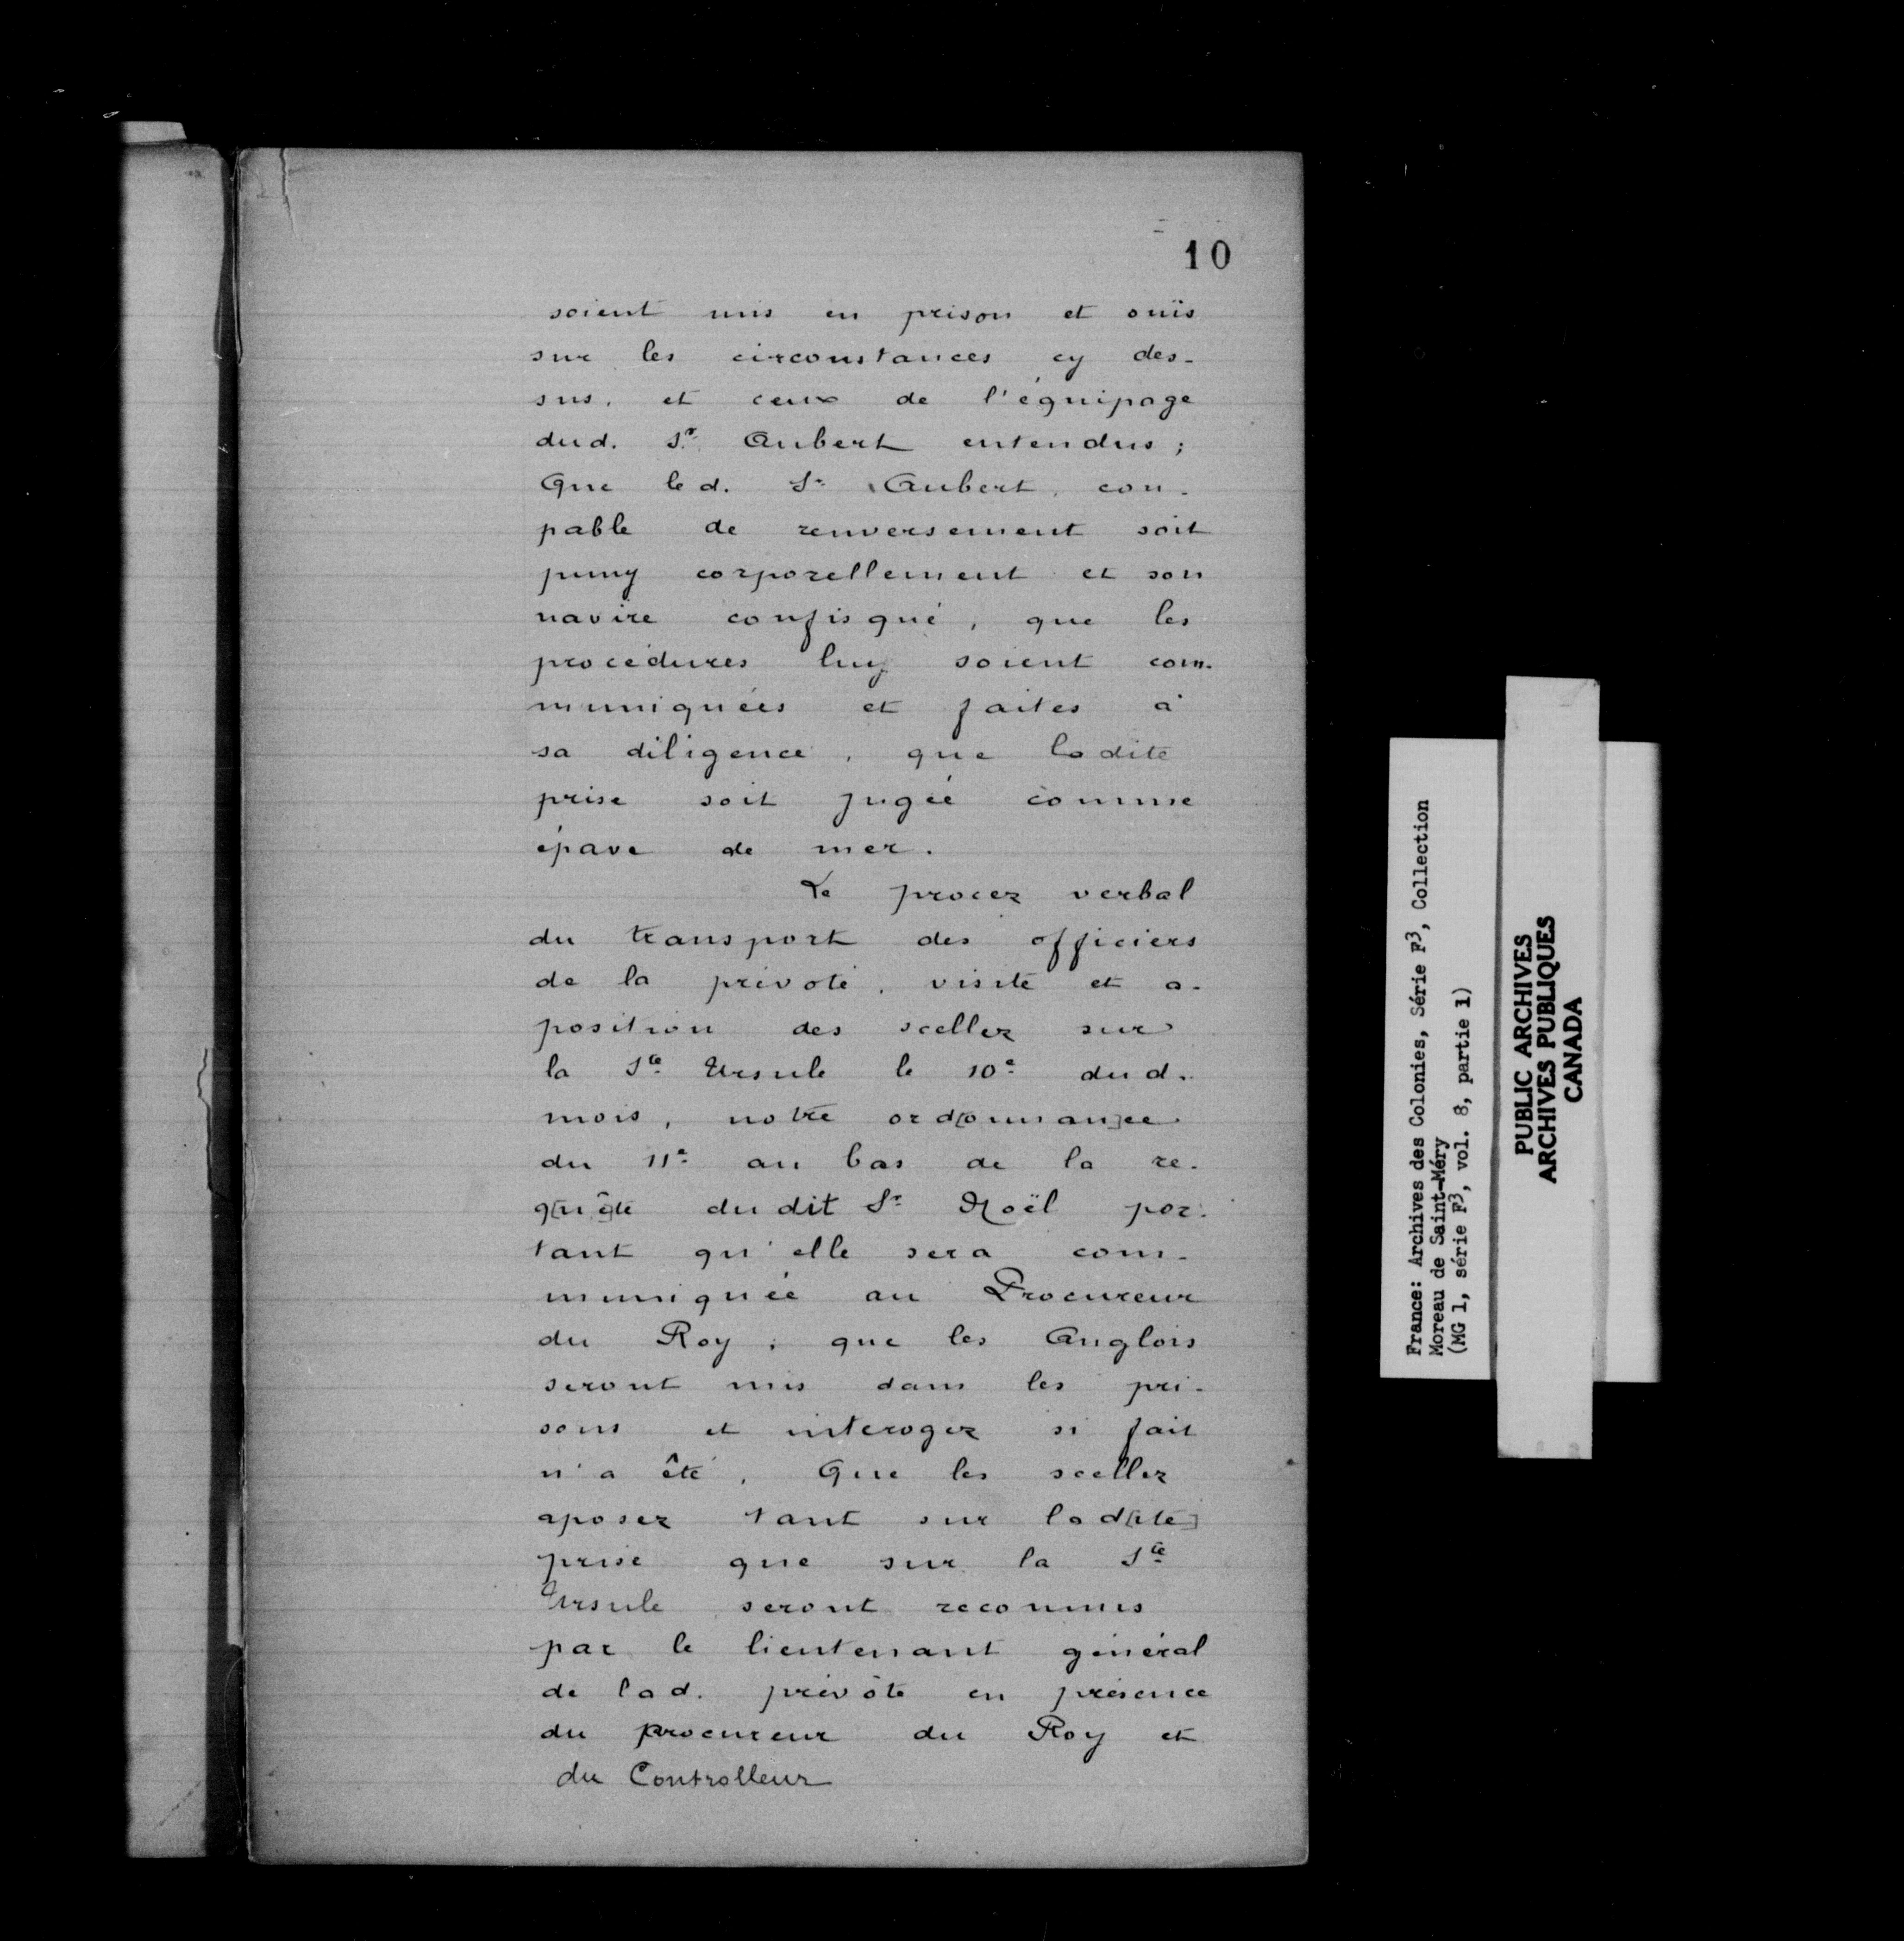 10
soient mis en prison et ouïs
sur les circonstances cy des-
sus, et ceux de l'équipage
dud. Sr. Aubert entendus;
Que led. Sr Aubert, cou-
pable de renversement soit
puny corporellement et son
navire confisqué, que les
procédures luy soient com-
muniquées et faites à
sa diligence, que ladite
prise soit jugée comme
épave de mer.
Le procez verbal
du transport des officiers
de la prévoté, visite et a-
position des scellez sur
la Ste Ursule le 10e dud.
mois, notre ord[onnan]ce
du 11e au bas de la re-
q[uê]te dudit Sr Noël por-
tant qu'elle sera com-
muniquée au Procureur
du Roy, que les Anglois
seront mis dans les pri-
sons et interogez si fait
n'a été, Que les scellez
aposez tant sur lad[ite]
prise que sur la Ste
Ursule seront reconnus
par le lieutenant général
de lad. prévôté en présence
du procureur du Roy et
du Controlleur
France: Archives des Colonies, Série F3, Collection
Moreau de Saint-Méry
(MG 1, série F3, vol. 8, partie 1)
PUBLIC ARCHIVES
ARCHIVES PUBLIQUES
CANADA